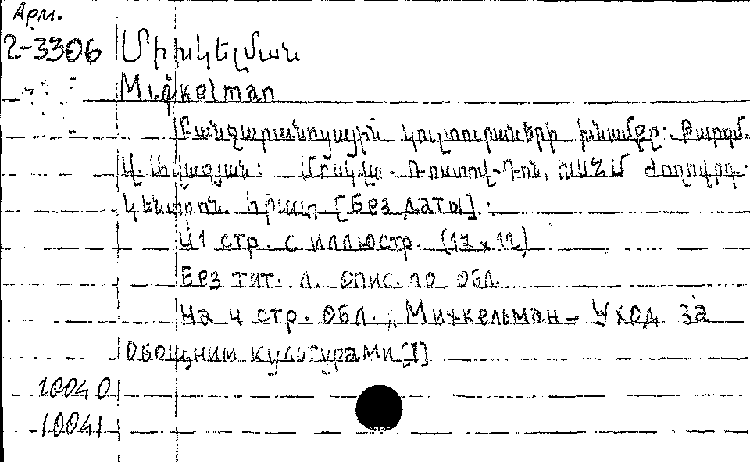 Арм.
2-3306 Միխկելման
Михкelman
Բանջարանոցային կուլտուրաների խնամքը: Թարգմ.
Մոսկվա - Ռոստով-Դոն, ԽՍՀՄ ժողովրդ.
Կենտրոն. հրատ [Без даты].
41 стр. с иллюстр. (17x12)
Без тит. л. опис. по обл.
На 4 стр. обл.: Михкельман - Уход за
овощними культурами [!]
10040
10041